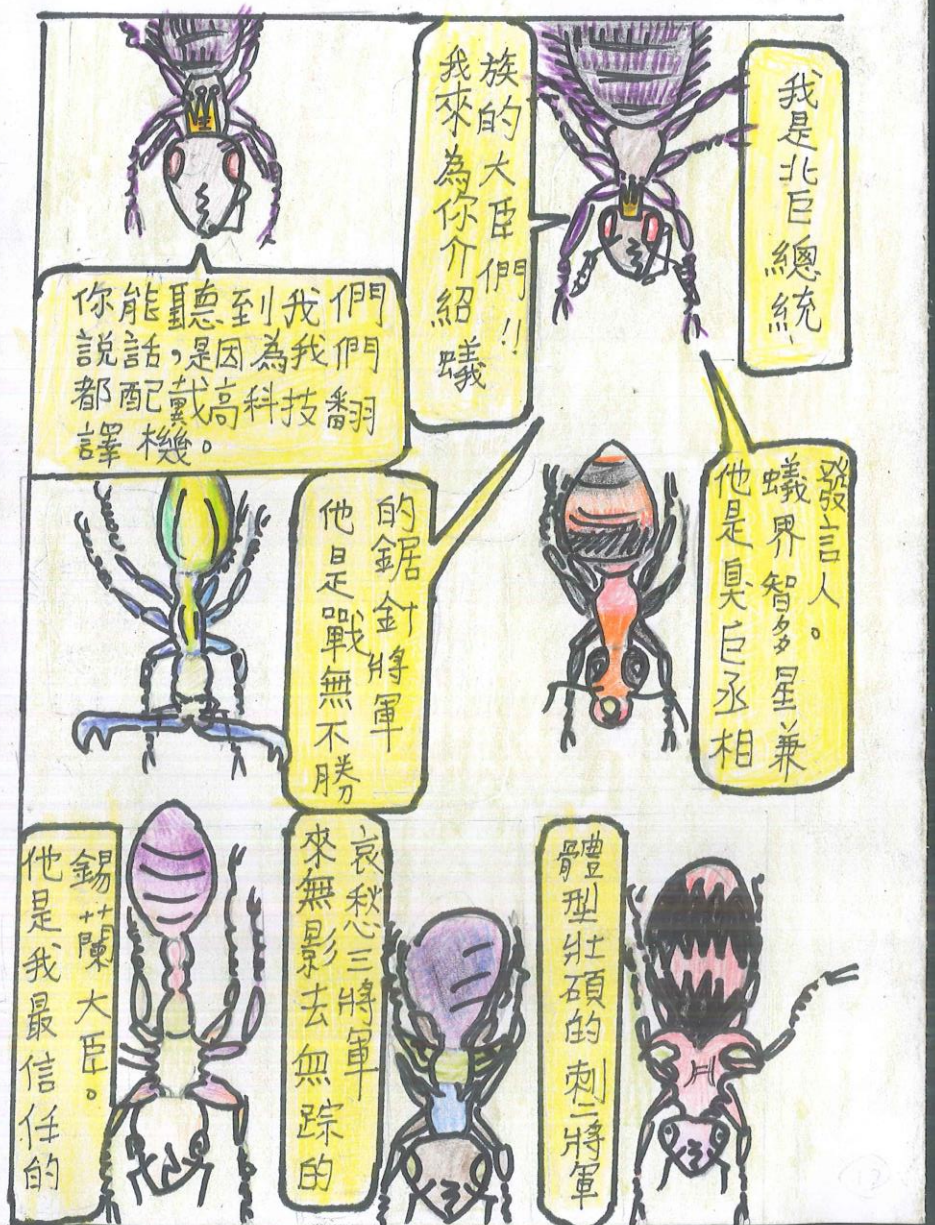 我是北巨總統
我來為你介紹蟻
族的大臣們!!
你能聽到我們
說話，是因為我們
都配戴高科技翻
譯機。
他是臭巨丞相
蟻界智多星兼
發言人。
他是戰無不勝
的鋸針將軍
體型壯碩的刺二將軍
來無影去無踪的
哀愁三將軍
他是我最信任的
錫蘭大臣。